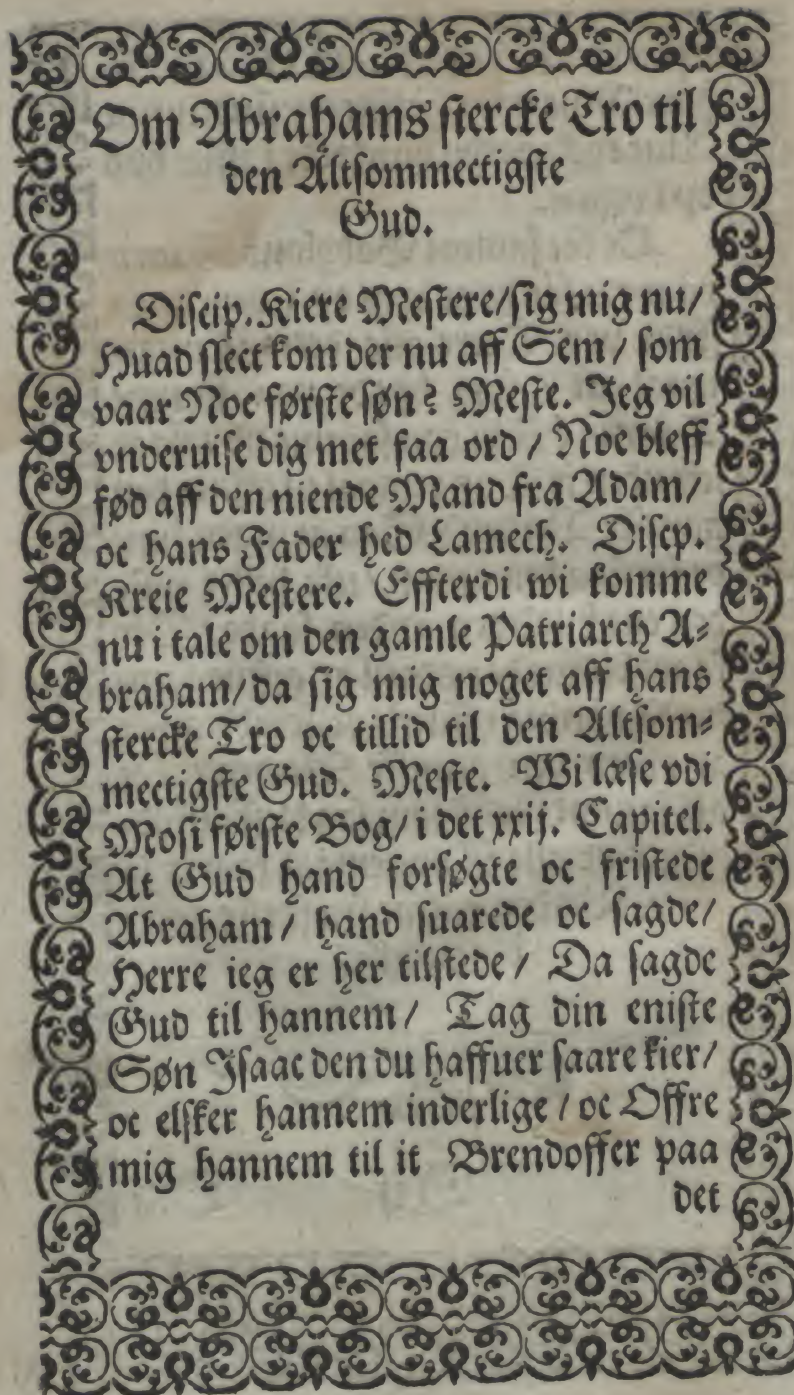 Om Abrahams stercke Tro til
den Altsommectigste
Gud.
Discip. Kiere Mestere/sig mig nu/
Huad slect kom der nu aff Sem / som
vaar Noe første søn? Meste. Jeg vil
vnderuise dig met faa ord / Noe bleff
fød aff den niende Mand fra Adam/
oc hans Fader hed Lamech. Discp.
Kreie Mestere. Effterdi wi komme
nu i tale om den gamle Patriarch A-
braham/da sig mig noget aff hans
stercke Tro oc tillid til den Altsom-
mectigste Gud. Meste. Wi læse vdi
Mosi første Bog/ i det xxij. Capitel.
At Gud hand forsøgte oc fristede
Abraham / hand suarede oc sagde/
Herre ieg er her tilstede / Da sagde
Gud til hannem/ Tag din eniste
Søn Isaac den du haffuer saare kier/
oc elsker hannem inderlige / oc Offre
mig hannem til it Brendoffer paa
det